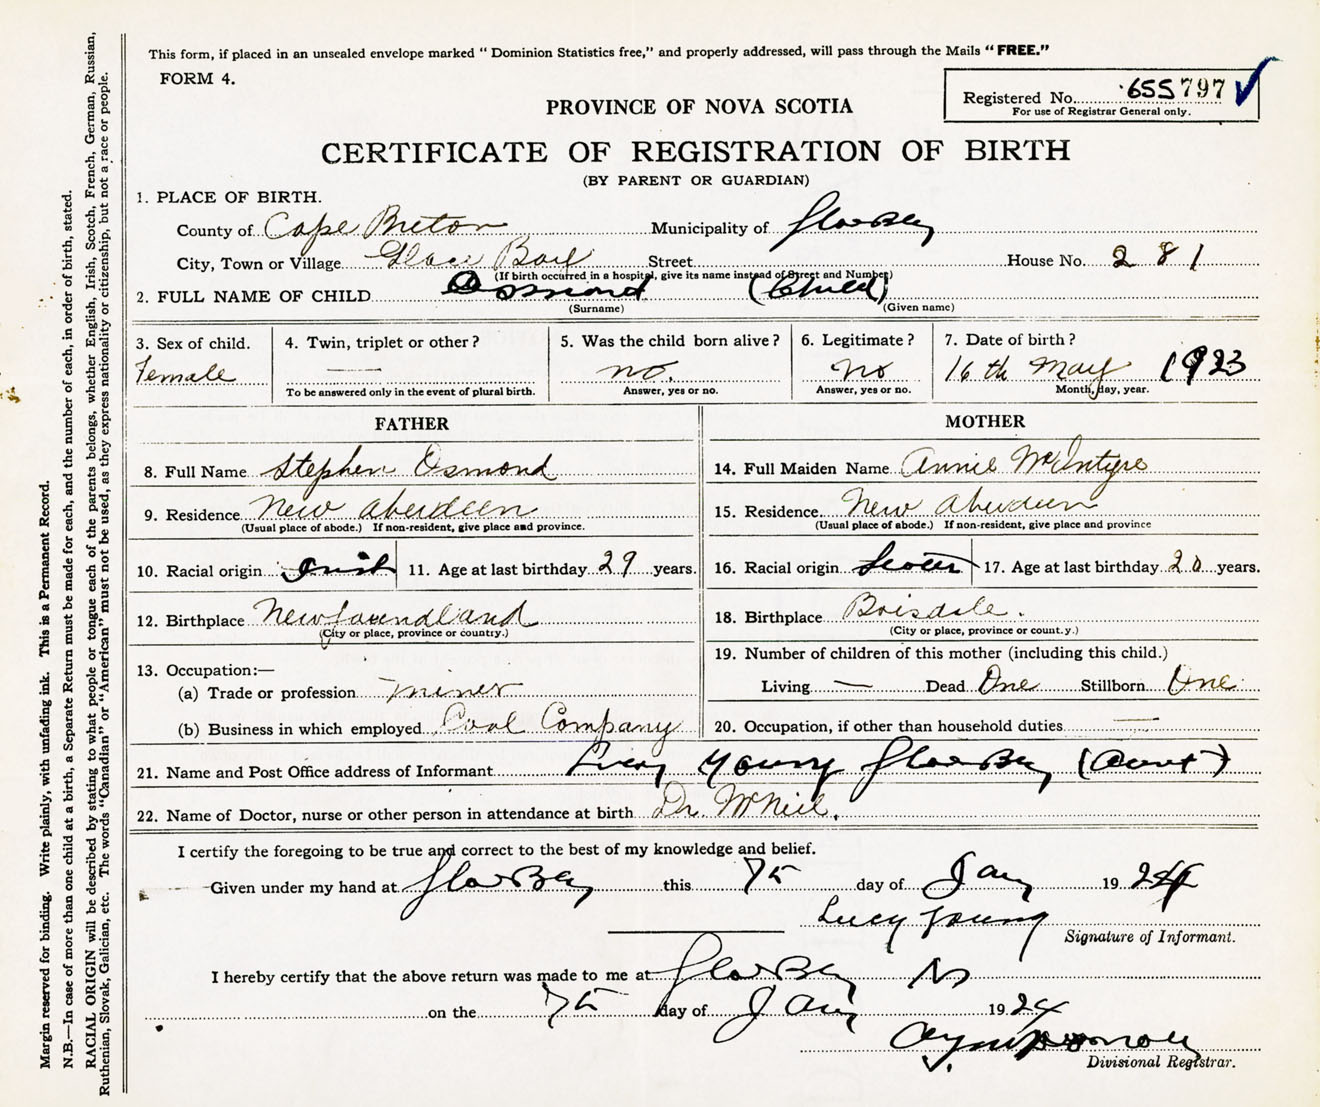 This form, if placed in an unsealed envelope marked "Dominion Statistics free," and properly addressed, will pass through the Mails "FREE."
FORM 4.
Registered No. 655797
For use of Registrar General only.
PROVINCE OF NOVA SCOTIA
CERTIFICATE OF REGISTRATION OF BIRTH
(BY PARENT OR GUARDIAN)
1. PLACE OF BIRTH.
County of Cape Breton Municipality of Glace Bay
City, Town or Village Glace Bay Street House No. 281
(If birth occurred in a hospital, give its name instead of Street and Number)
2. FULL NAME OF CHILD Osmond (Child)
(Surname) (Given name)
3. Sex of child. 4. Twin, triplet or other? 5. Was the child born alive? 6. Legitimate? 7. Date of birth?
Female — no. No 16th May 1923
To be answered only in the event of plural birth. Answer, yes or no. Answer, yes or no. Month, day, year.
FATHER MOTHER
8. Full Name Stephen Osmond 14. Full Maiden Name Annie McIntyre
9. Residence New Aberdeen 15. Residence New Aberdeen
(Usual place of abode.) If non-resident, give place and province. (Usual place of abode.) If non-resident, give place and province
10. Racial origin Irish 11. Age at last birthday 29 years. 16. Racial origin Scotch 17. Age at last birthday 20 years.
12. Birthplace Newfoundland 18. Birthplace Boisdale.
(City or place, province or country.) (City or place, province or count.y.)
13. Occupation:— 19. Number of children of this mother (including this child.)
(a) Trade or profession miner Living — Dead One Stillborn One
(b) Business in which employed Coal Company 20. Occupation, if other than household duties —
21. Name and Post Office address of Informant Lucy Young Glace Bay (Aunt)
22. Name of Doctor, nurse or other person in attendance at birth Dr. McNeil.
I certify the foregoing to be true and correct to the best of my knowledge and belief.
Given under my hand at Glace Bay this 7th day of Jany 1924
Lucy Young
Signature of Informant.
I hereby certify that the above return was made to me at Glace Bay NS
on the 7th day of Jany 1924
Divisional Registrar.
Margin reserved for binding. Write plainly, with unfading ink. This is a Permanent Record.
N.B.—In case of more than one child at a birth, a Separate Return must be made for each, and the number of each, in order of birth, stated.
RACIAL ORIGIN will be described by stating to what people or tongue each of the parents belongs, whether English, Irish, Scotch, French, German, Russian,
Ruthenian, Slovak, Galician, etc. The words "Canadian" or "American" must not be used, as they express nationality or citizenship, but not a race or people.